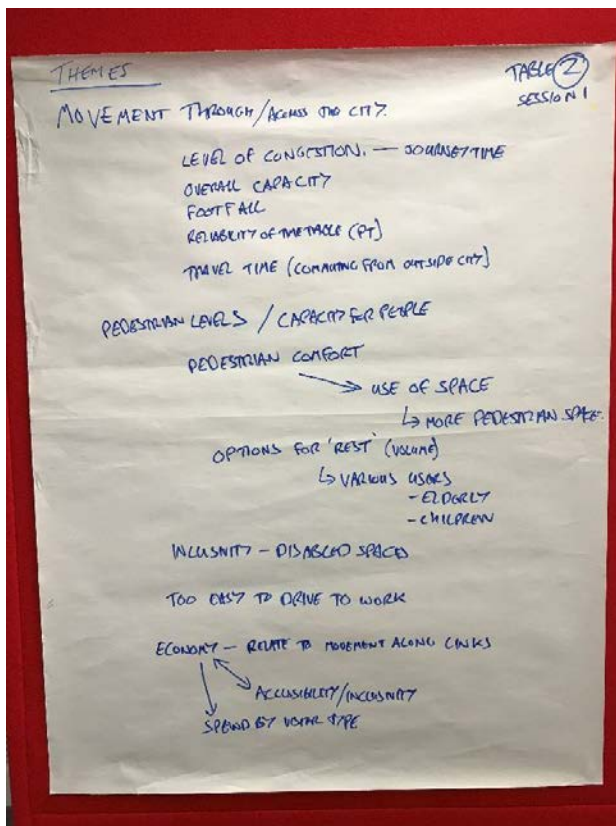 THEMES
TABLE 2
SESSION 1
MOVEMENT THROUGH/ACROSS THE CITY.
LEVEL OF CONGESTION. — JOURNEY TIME
OVERALL CAPACITY
FOOTFALL
RELIABILITY OF TIMETABLE (PT)
TRAVEL TIME (COMMUTING FROM OUTSIDE CITY)
PEDESTRIAN LEVELS / CAPACITY FOR PEOPLE
PEDESTRIAN COMFORT
→ USE OF SPACE
↳ MORE PEDESTRIAN SPACE.
OPTIONS FOR 'REST' (VOLUME)
↳ VARIOUS USERS
- ELDERLY
- CHILDREN
INCLUSIVITY – DISABLED SPACES
TOO EASY TO DRIVE TO WORK
ECONOMY – RELATE TO MOVEMENT ALONG LINKS
ACCESSIBILITY/INCLUSIVITY
SPEND BY TYPE